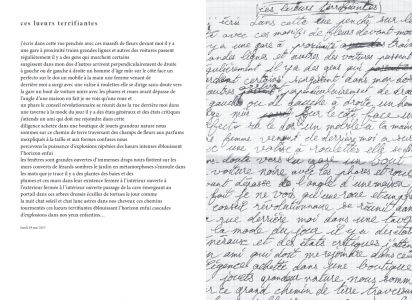 ces lueurs terrifiantes
j'écris dans cette rue penchée avec ces massifs de fleurs devant moi il y a
une gare à proximité traux grandes lignes et autres des voitures passent
régulièrement il y a des gens qui marchent certains
surgissent dans mon dos d'autres arrivent perpendiculairement de droite
à gauche ou de gauche à droite un homme d'âge mûr sur le côté face un
perfecto sur le dos un mobile à la main une femme venant de
derrière moi a surgi avec une valise à roulettes elle se dirige sans doute vers
la gare un bout de voiture noire avec les phares et roues avant dépasse de
l'angle d'une maison en fait je ne vois qu'une roue et
un phare le conseil révolutionnaire se réunit dans la rue derrière moi dans
une taverne à la mode du jour il y a des états généraux et des états critiques
j'attends un ami qui doit me rejoindre dans cette
élégance achetée dans une boutique de jouets grandeur nature nous
sommes sur ce chemin de terre traversant des champs de fleurs aux parfums
inexpliqués à la taille et aux formes confuses nous
percevons la puissance d'explosions répétées des lueurs intenses éblouissent
l'horizon enfui
les fenêtres sont grandes ouvertes d'immenses draps noirs flottent sur les
murs couverts de lézards sombres le jardin en métamorphoses s'enroule dans
les mots que je trace il y a des plantes des baies et des
plumes et ces murs dans leur existence fermée à l'intérieur ouverte à
l'extérieur fermée à l'intérieur ouverte passage de la cave émergeant au
portail dans ces arbres dressés écailles de tortues le jour comme
la nuit chat soleil et chat lune arrivé dans nos cheveux ces chemins
tourments ces lueurs terrifiantes éblouissent l'horizon enfui cascades
d'explosions dans nos yeux enfantins…
lundi 29 mai 2017
ces lueurs terrifiantes
écris dans cette rue penchée sur la
avec ces massifs de fleurs devant moi
une gare à proximité
andes lignes et autres des voitures passent
gulièrement il y a des gens qui
certains surgissent dans mon dos
perpendiculairement de droite
ou de gauche à droite un hom
sur le côté face un
perfecto sur le dos un mobile à la main
femme venant de derrière moi a surgi
avec une valise à roulettes elle se
doute vers la gare un bout
voiture noire avec les phares et roues
avant dépasse de l'angle d'une maison
fait je ne vois qu'une roue et un phare
conseil révolutionnaire se réunit dans
rue derrière moi dans une taverne
la mode du jour il y a des états
généraux et des états critiques j'attends
un ami qui doit me rejoindre dans cette
élégance achetée dans une boutique
jouets grandeur nature nous sommes
ce grand chemin de terre traversant